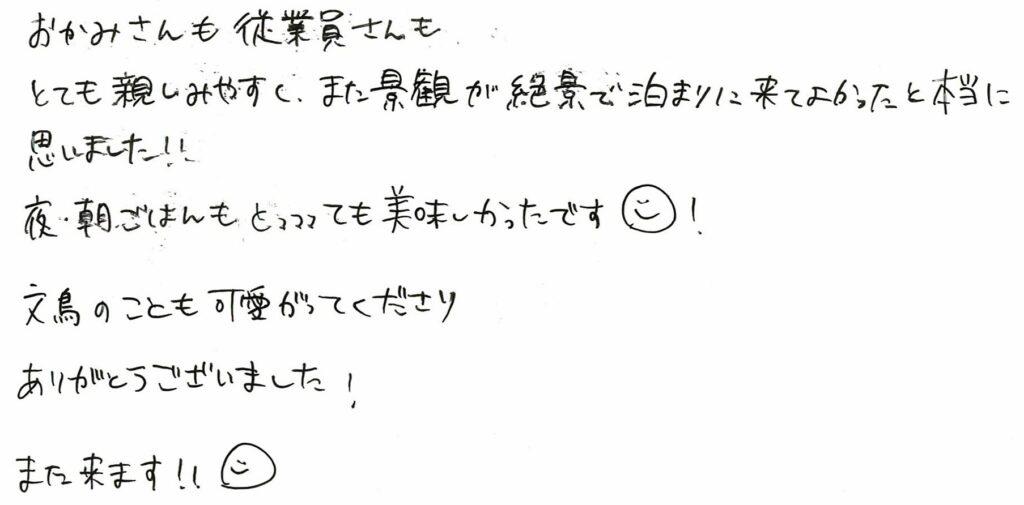 おかみさんも従業員さんも
とても親しみやすく、また景観が絶景で泊まりに来てよかったと本当に
思いました!!
夜・朝ごはんもとっっっても美味しかったです!
文鳥のことも可愛がってくださり
ありがとうございました!
また来ます!!